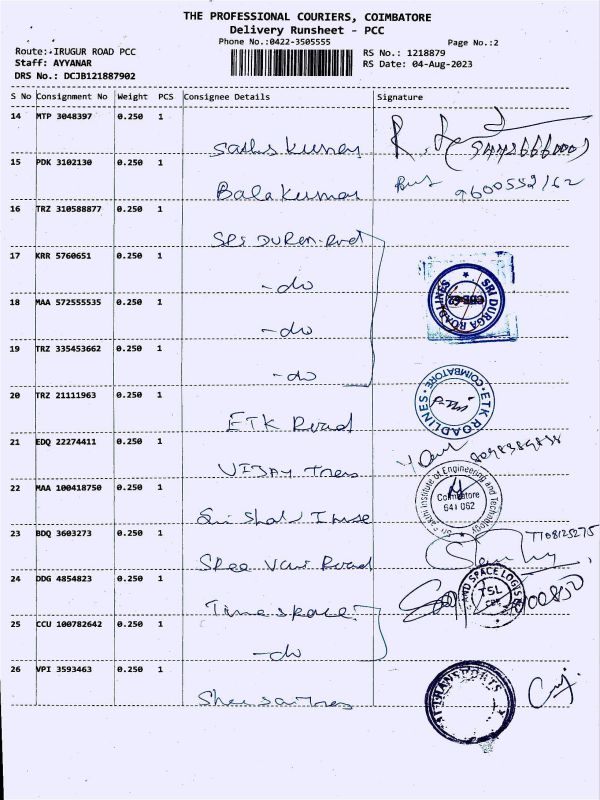 THE PROFESSIONAL COURIERS, COIMBATORE
Delivery Runsheet - PCC
Phone No.:0422-3505555
Page No.:2
Route: IRUGUR ROAD PCC
RS No.: 1218879
Staff: AYYANAR
RS Date: 04-Aug-2023
DRS No.: DCJB121887902
S No Consignment No Weight PCS Consignee Details Signature
14 MTP 3048397 0.250 1
15 PDK 3102130 0.250 1 Bala Kumar
16 TRZ 310588877 0.250 1
17 KRR 5760651 0.250 1 -do
SRI DURGA ROADLINES
18 MAA 572555535 0.250 1 -do
19 TRZ 335453662 0.250 1 -do
20 TRZ 21111963 0.250 1 ETK Road
ETK ROADLINES COIMBATORE
21 EDQ 22274411 0.250 1 VIJAY Tres
22 MAA 100418750 0.250 1
Institute of Engineering and Technology
Coimbatore
641 062
23 BDQ 3603273 0.250 1 Shree Vari Road
7708125275
24 DDG 4854823 0.250 1 Time space
AND SPACE LOGIS
TSL
CBE
25 CCU 100782642 0.250 1 -do
26 VPI 3593463 0.250 1
TRANSPORTS